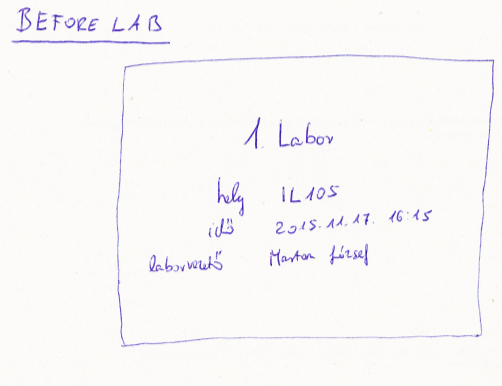 BEFORE LAB
1. Labor
hely IL105
idő 2015.11.17. 16:15
laborvezető Marton József